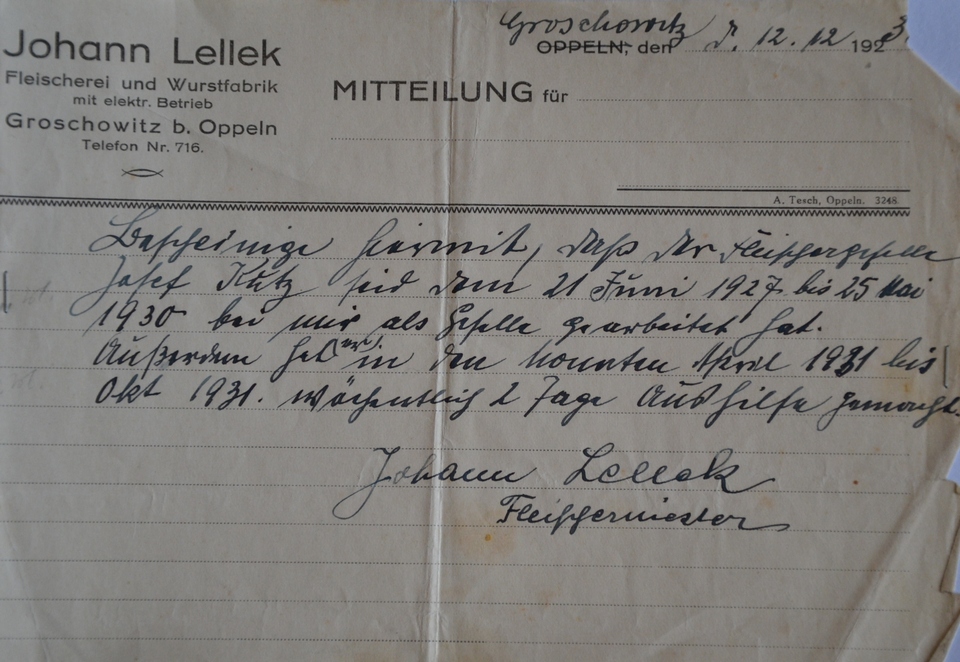 Johann Lellek
Fleischerei und Wurstfabrik
mit elektr. Betrieb
Groschowitz b. Oppeln
Telefon Nr. 716.
Groschowitz
OPPELN, den d. 12.12 192
MITTEILUNG für
A. Tesch, Oppeln. 3248
Bescheinige hiermit, daß der Fleischergeselle
Josef Kutz seid dem 21 Juni 1927 bis 25 Mai
1930 bei mir als Geselle gearbeitet hat.
Außerdem hat (er) in den Monaten April 1931 bis
Okt 1931. wöchentlich 2 Tage Aushilfe gemacht.
Johann Lellek
Fleischermiester